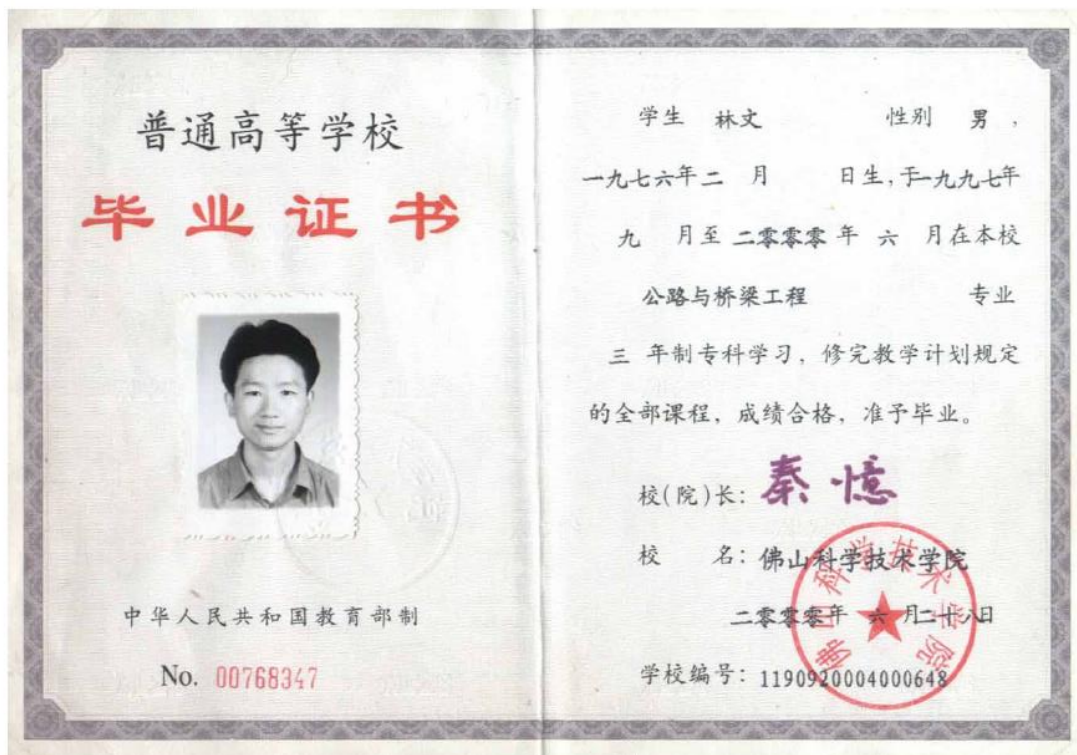 普通高等学校
毕业证书
中华人民共和国教育部制
No. 00768347
学生 林文 性别 男，
一九七六年二 月 日生，于一九九七年
九 月至 二零零零 年 六 月在本校
公路与桥梁工程 专业
三 年制专科学习，修完教学计划规定
的全部课程，成绩合格，准予毕业。
校(院)长：秦憶
校 名：佛山科学技术学院
二零零零年 六 月二十八日
学校编号：1190920004000648
佛山科学技术学院